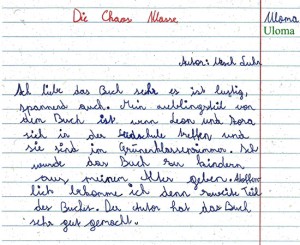 Die Chaos Klasse
Uloma
Uloma
Autor:
Ich liebe das Buch sehr es ist lustig,
spannend auch. Mein Lieblingsteil von
dem Buch ist wenn Leon und
sich in der treffen und
sie sind im Ich
wurde das Buch zur kindern
aus meinem Alter geben.
lich bekomme ich denn zweite Teil
des Buchs. Der Autor hat das Buch
sehr gut gemacht.